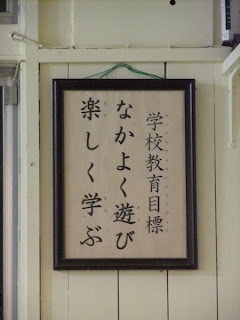 学校教育目標
なかよく遊び
楽しく学ぶ